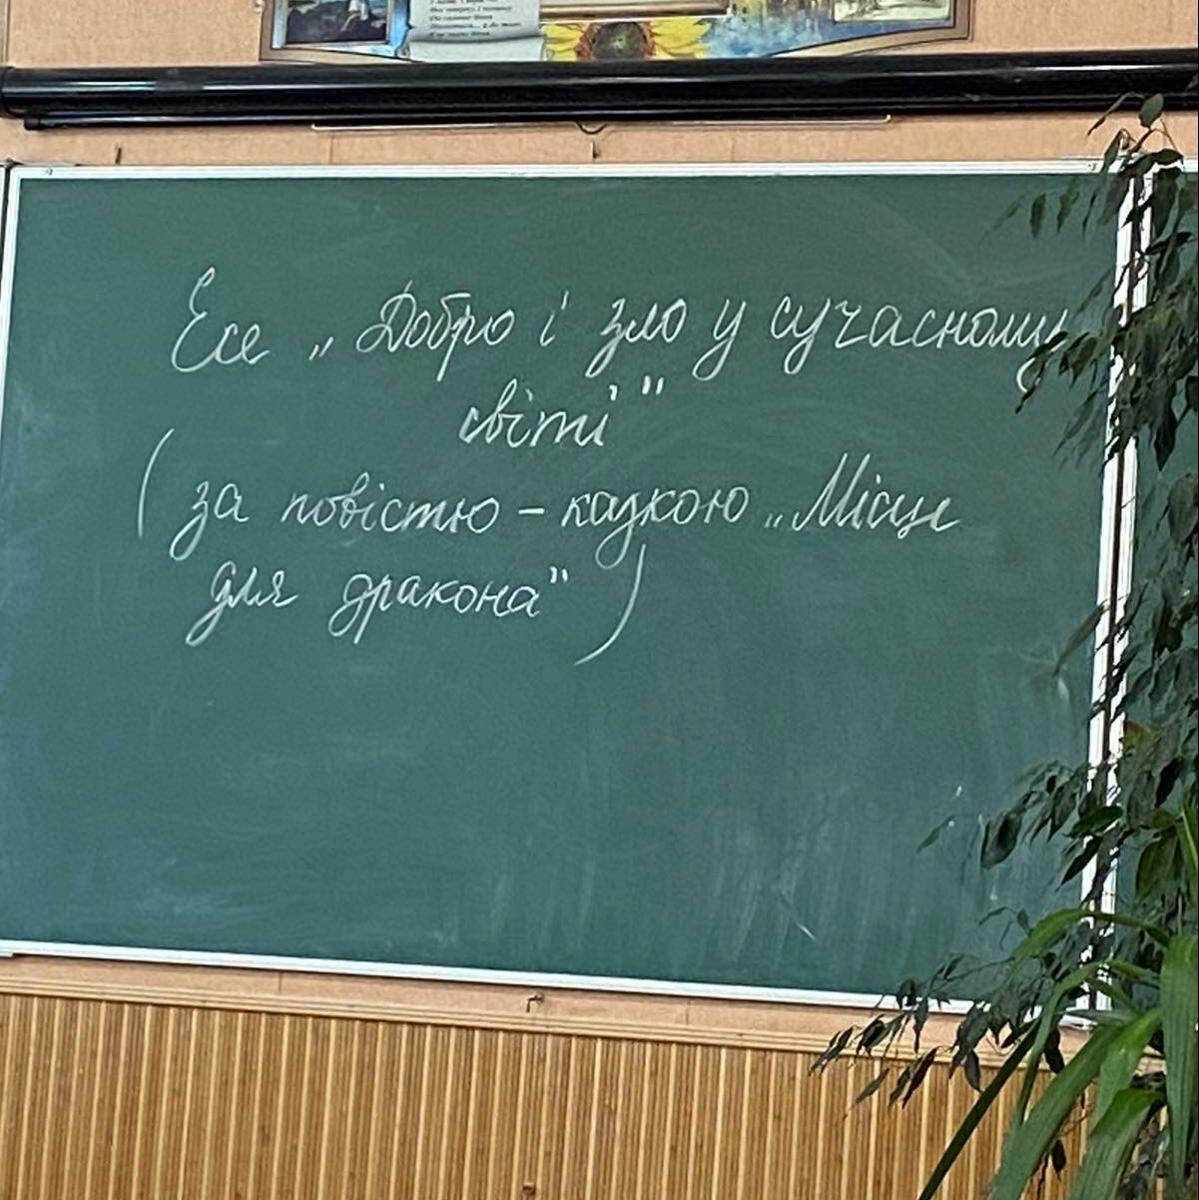 Есе „Добро і зло у сучасному
світі"
(за повістю - казкою „Місце
для дракона")